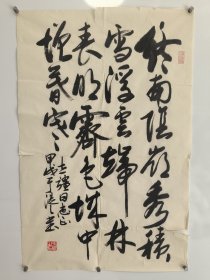 终南阴岭秀积
雪浮云端林
表明霁色城中
增暮寒
甲戌